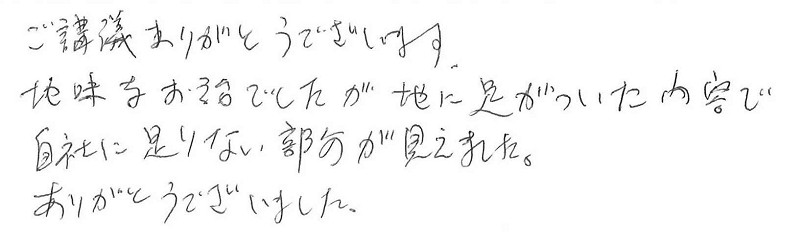 ご講義ありがとうございます
地味なお話でしたが地に足がついた内容で
自社に足りない部分が見えました。
ありがとうございました。